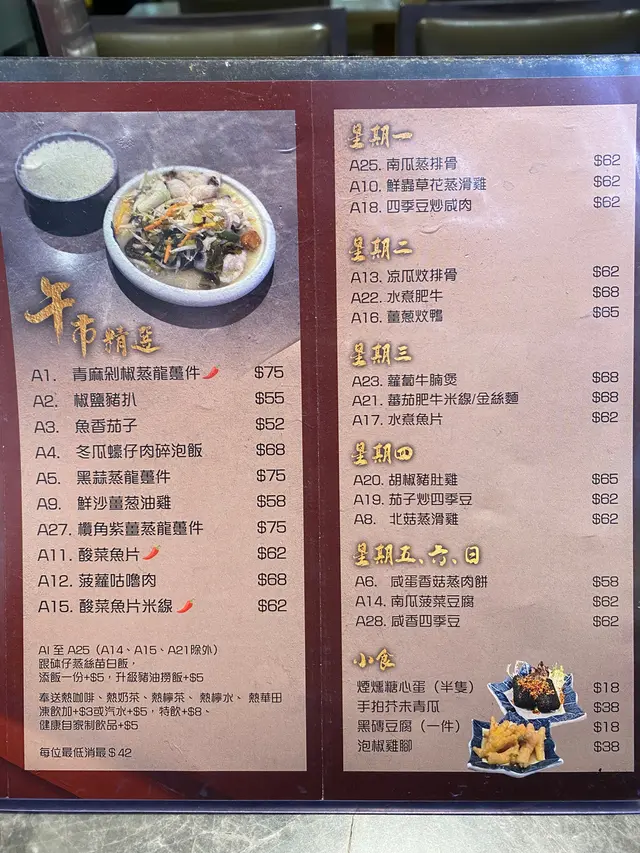 午市精選
A1. 青麻剁椒蒸龍躉件 $75
A2. 椒鹽豬扒 $55
A3. 魚香茄子 $52
A4. 冬瓜蠔仔肉碎泡飯 $68
A5. 黑蒜蒸龍躉件 $75
A9. 鮮沙薑葱油雞 $58
A27. 欖角紫薑蒸龍躉件 $75
A11. 酸菜魚片 $62
A12. 菠蘿咕嚕肉 $68
A15. 酸菜魚片米線 $62
A1 至 A25（A14、A15、A21除外）
跟砵仔蒸絲苗白飯，
添飯一份+$5，升級豬油撈飯+$5
奉送熱咖啡、熱奶茶、熱檸茶、熱檸水、熱華田
凍飲加+$3或汽水+$5，特飲+$8、
健康自家制飲品+$5
每位最低消最$42
星期一
A25. 南瓜蒸排骨 $62
A10. 鮮蟲草花蒸滑雞 $62
A18. 四季豆炒咸肉 $62
星期二
A13. 涼瓜炆排骨 $62
A22. 水煮肥牛 $68
A16. 薑葱炆鴨 $65
星期三
A23. 蘿蔔牛腩煲 $68
A21. 蕃茄肥牛米線/金絲麵 $68
A17. 水煮魚片 $62
星期四
A20. 胡椒豬肚雞 $65
A19. 茄子炒四季豆 $62
A8. 北菇蒸滑雞 $62
星期五、六、日
A6. 咸蛋香菇蒸肉餅 $58
A14. 南瓜菠菜豆腐 $62
A28. 咸香四季豆 $62
小食
煙燻糖心蛋（半隻） $18
手拍芥末青瓜 $38
黑磚豆腐（一件） $18
泡椒雞腳 $38